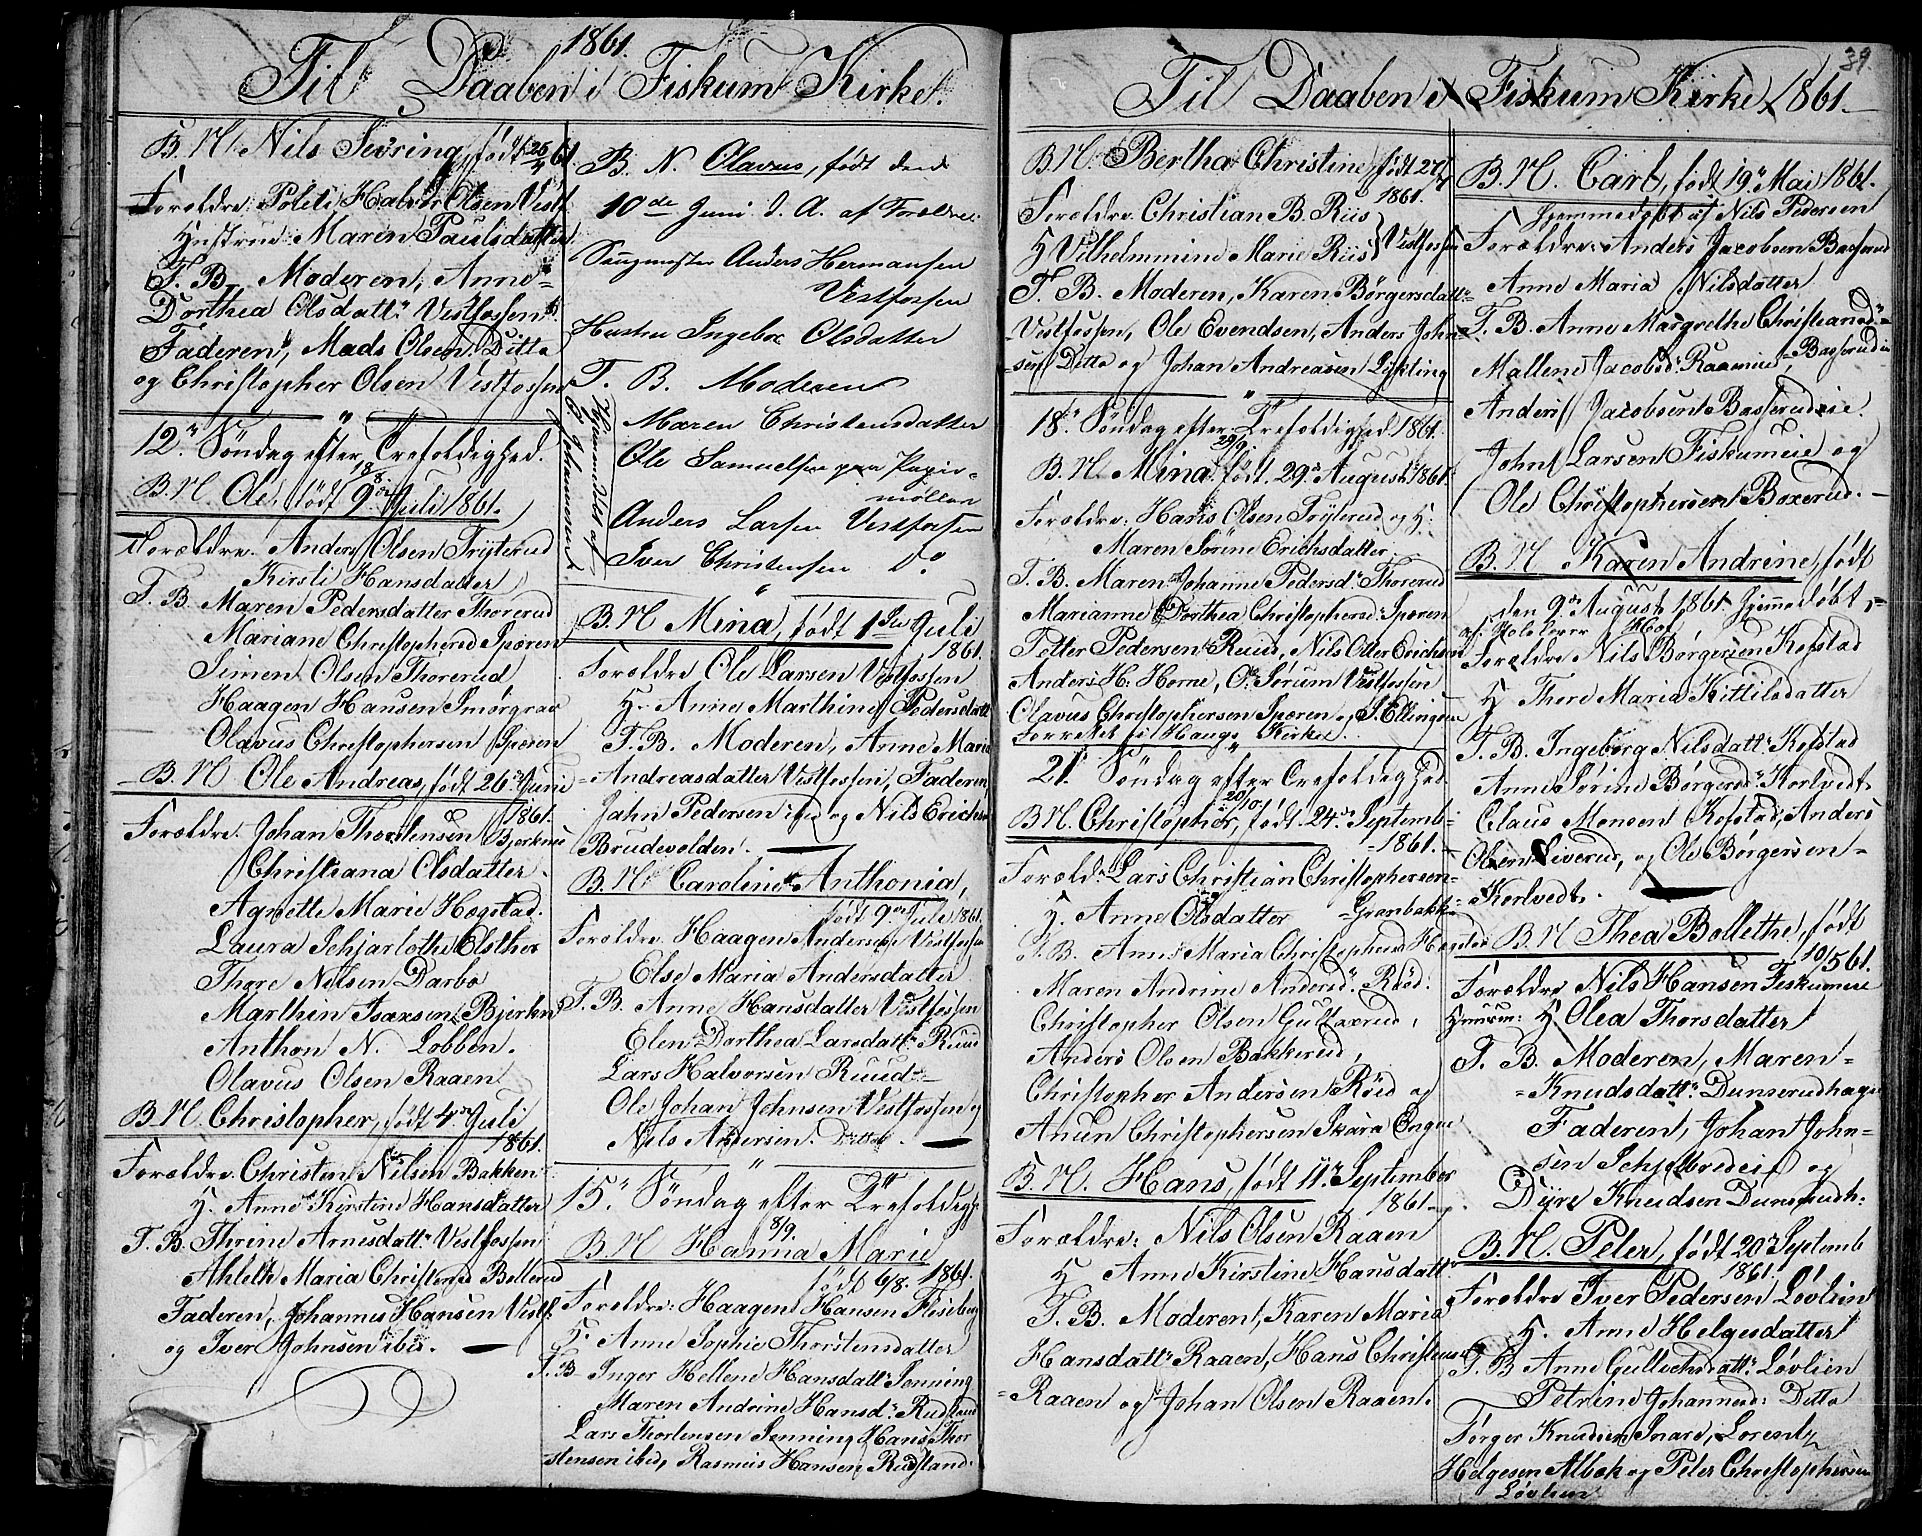 1861.
Til Daaben i Fiskum Kirke.
B. N. Nils Sevring, født 26/4 61
Forældre: Politi Halvor Olsen Vestf.
Hustrue Maren Paulsdatter
F. B. Moderen, Anne
Dorthea Olsdattr Vestfossen
Faderen, Mads Olsen Ditto
og Christopher Olsen Vestfossen
12te Søndag efter Trefoldighed.
18/8
B. N. Ole, født 9de Juli 1861.
Forældre. Anders Olsen Tryterud
Kirsti Hansdatter
F. B. Maren Pedersdatter Thorerud
Mariane Christophersd Spæren
Simen Olsen Thorerud
Haagen Hansen Smørgrav
Olavus Christophersen Spæren
B. N. Ole Andreas, født 26de Juni
1861.
Forældre. Johan Thorstensen Bjerknes
Christiana Olsdatter
Agnette Marie Høgstad.
Laura Schjarlothe Elsther
Thore Nilsen Darbo
Marthin Isaxsen Bjerkn
Anthon N. Lobben.
Olavus Olsen Raaen
B. N. Christopher, født 4de Juli
1861.
Forældre. Christen Nilsen Bakken
H. Anne Kirstine Hansdatter
F. B. Thrine Arnesdattr Vestfossen
Ahlethe Maria Christensd Bollerud
Faderen, Johannes Hansen Vestf:
og Iver Johnsen ibid.
B. N. Olavus, født den
10de Juni d. A. af Forældre:
Saugmester Anders Hermansen
Vestfossen
Hustru Ingebor Olsdatter
F. B. Moderen
Maren Christensdatter
Ole Samuelsen paa Papir-
møllen
Anders Larsen Vestfossen
Iver Christensen do
Hjemmedøbt af
E. Johannesen
B. N. Mina, født 1ste Juli
1861.
Forældre Ole Larsen Vestfossen
H. Anne Marthine Pedersdatt
F. B. Moderen, Anne Maria
Andreasdatter Vestfossen, Faderen,
Jahn Pedersen ibid og Nils Erichs
Brudevolden.
B. N. Caroline Anthonia,
født 9de Juli 1861.
Forældre. Haagen Andersen Vestfossen
Else Maria Andersdatter
F. B. Anne Hansdatter Vestfossen
Elen Dorthea Larsdattr Ruud
Lars Halvorsen Ruud
Ole Johan Johnsen Vestfossen og
Nils Andersen. Ditto.
15de Søndag efter Trefoldigh
8/9.
B. N. Hanna Marie
født 6/8. 1861.
Forældre: Haagen Hansen Fliseberg
H. Anne Sophie Thorstensdatter
F. B. Inger Hellene Hansdattr Sønning
Maren Andrine Hansdr Rudstand
Lars Thorstensen Sønning, Hans Thor
stensen ibid, Rasmus Hansen Rudstand.
39.
Til Daaben i Fiskum Kirke 1861.
B. N. Bertha Christine, født 27/4
1861.
Forældre. Christian B. Riis
H. Vilhelmmine Marie Riis } Vestfossen
F. B. Moderen, Karen Børgersdattr
Vestfossen, Ole Evendsen, Anders John
sen Ditto og Johan Andreasen Løkting
18de Søndag efter Trefoldighed 1861.
29/9
B. N. Mina født. 29de August 1861
Forældre: Hans Olsen Tryterud og H:
Maren Sørine Erichsdatter
F. B. Maren Johanne Pedersdr Thorerud
Marianne Dorthea Christophersdr Spæren
Petter Pedersen Ruud, Nils Otter Erichsen
Anders H. Horne, O. Sørum Vestfossen
Olavus Christophersen Spæren og S. Ellingsen
Forrettet til Haugs Kirke.
21de Søndag efter Trefoldighed
20/10
B. N. Christopher, født. 24de Septemb
1861.
Foræld. Lars Christian Christophersen
H. Anne Olsdatter Granbakk
F. B. Anne Maria Christophersd Høgstad
Maren Andrine Andersd. Røed:
Christopher Olsen Gulliaxrud,
Anders Olsen Bakkerud,
Christopher Andersen Røed og
Anun Christophersen Skara Engen
B. N. Hans, født 11te September
1861.
Forældre: Nils Olsen Raaen
H Anne Kirstine Hansdattr
F. B. Moderen, Karen Maria
Hansdattr Raaen, Hans Christensen
Raaen og Johan Olsen Raaen.
B. N. Carl, født 19de Mai 1861.
Hjemmedøbt af Nils Pedersen
Forældre. Anders Jacobsen Basserud
Anne Maria Nilsdatter
F. B. Anne Margrethe Christiansdr
Mallene Jacobsdr Raameie, Basserudeie
Anders Jacobsen Basserudeie.
John Larsen Fiskumeie og
Ole Christophersen Boxerud.
B. N. Karen Andrine, født
den 9de August 1861 Hjemmedøbt
af: Skolelærer Hoe
Forældre Nils Børgersen Kofstad
H Thore Maria Kittilsdatter
F. B. Ingeborg Nilsdattr Kofstad
Anne Sørine Børgersdr Korlvedt
Claus Monsen Kofstad, Anders
Olsen Siverud, og Ole Børgersen
Korlvedt.
B. N Thea Bollethe, født
10/5 61.
Forældre Nils Hansen Fiskumeie
H Olea Thorsdatter
F. B. Moderen, Maren
Knudsdattr Dunserudhagen
Faderen, Johan John=
sen Schjelbredeie og
Dyre Knudsen Dunserudh.
B. N. Peter, født 20de Septemb
1861.
Forældre Iver Pedersen Løvlien
H. Anne Helgesdatter
F. B Anne Gullichsdattr Løvlien
Petrine Johannesd: Ditto
Torger Knudsen Snare, Lorentz
Helgesen Albæk og Peter Christophersen
Løvlien